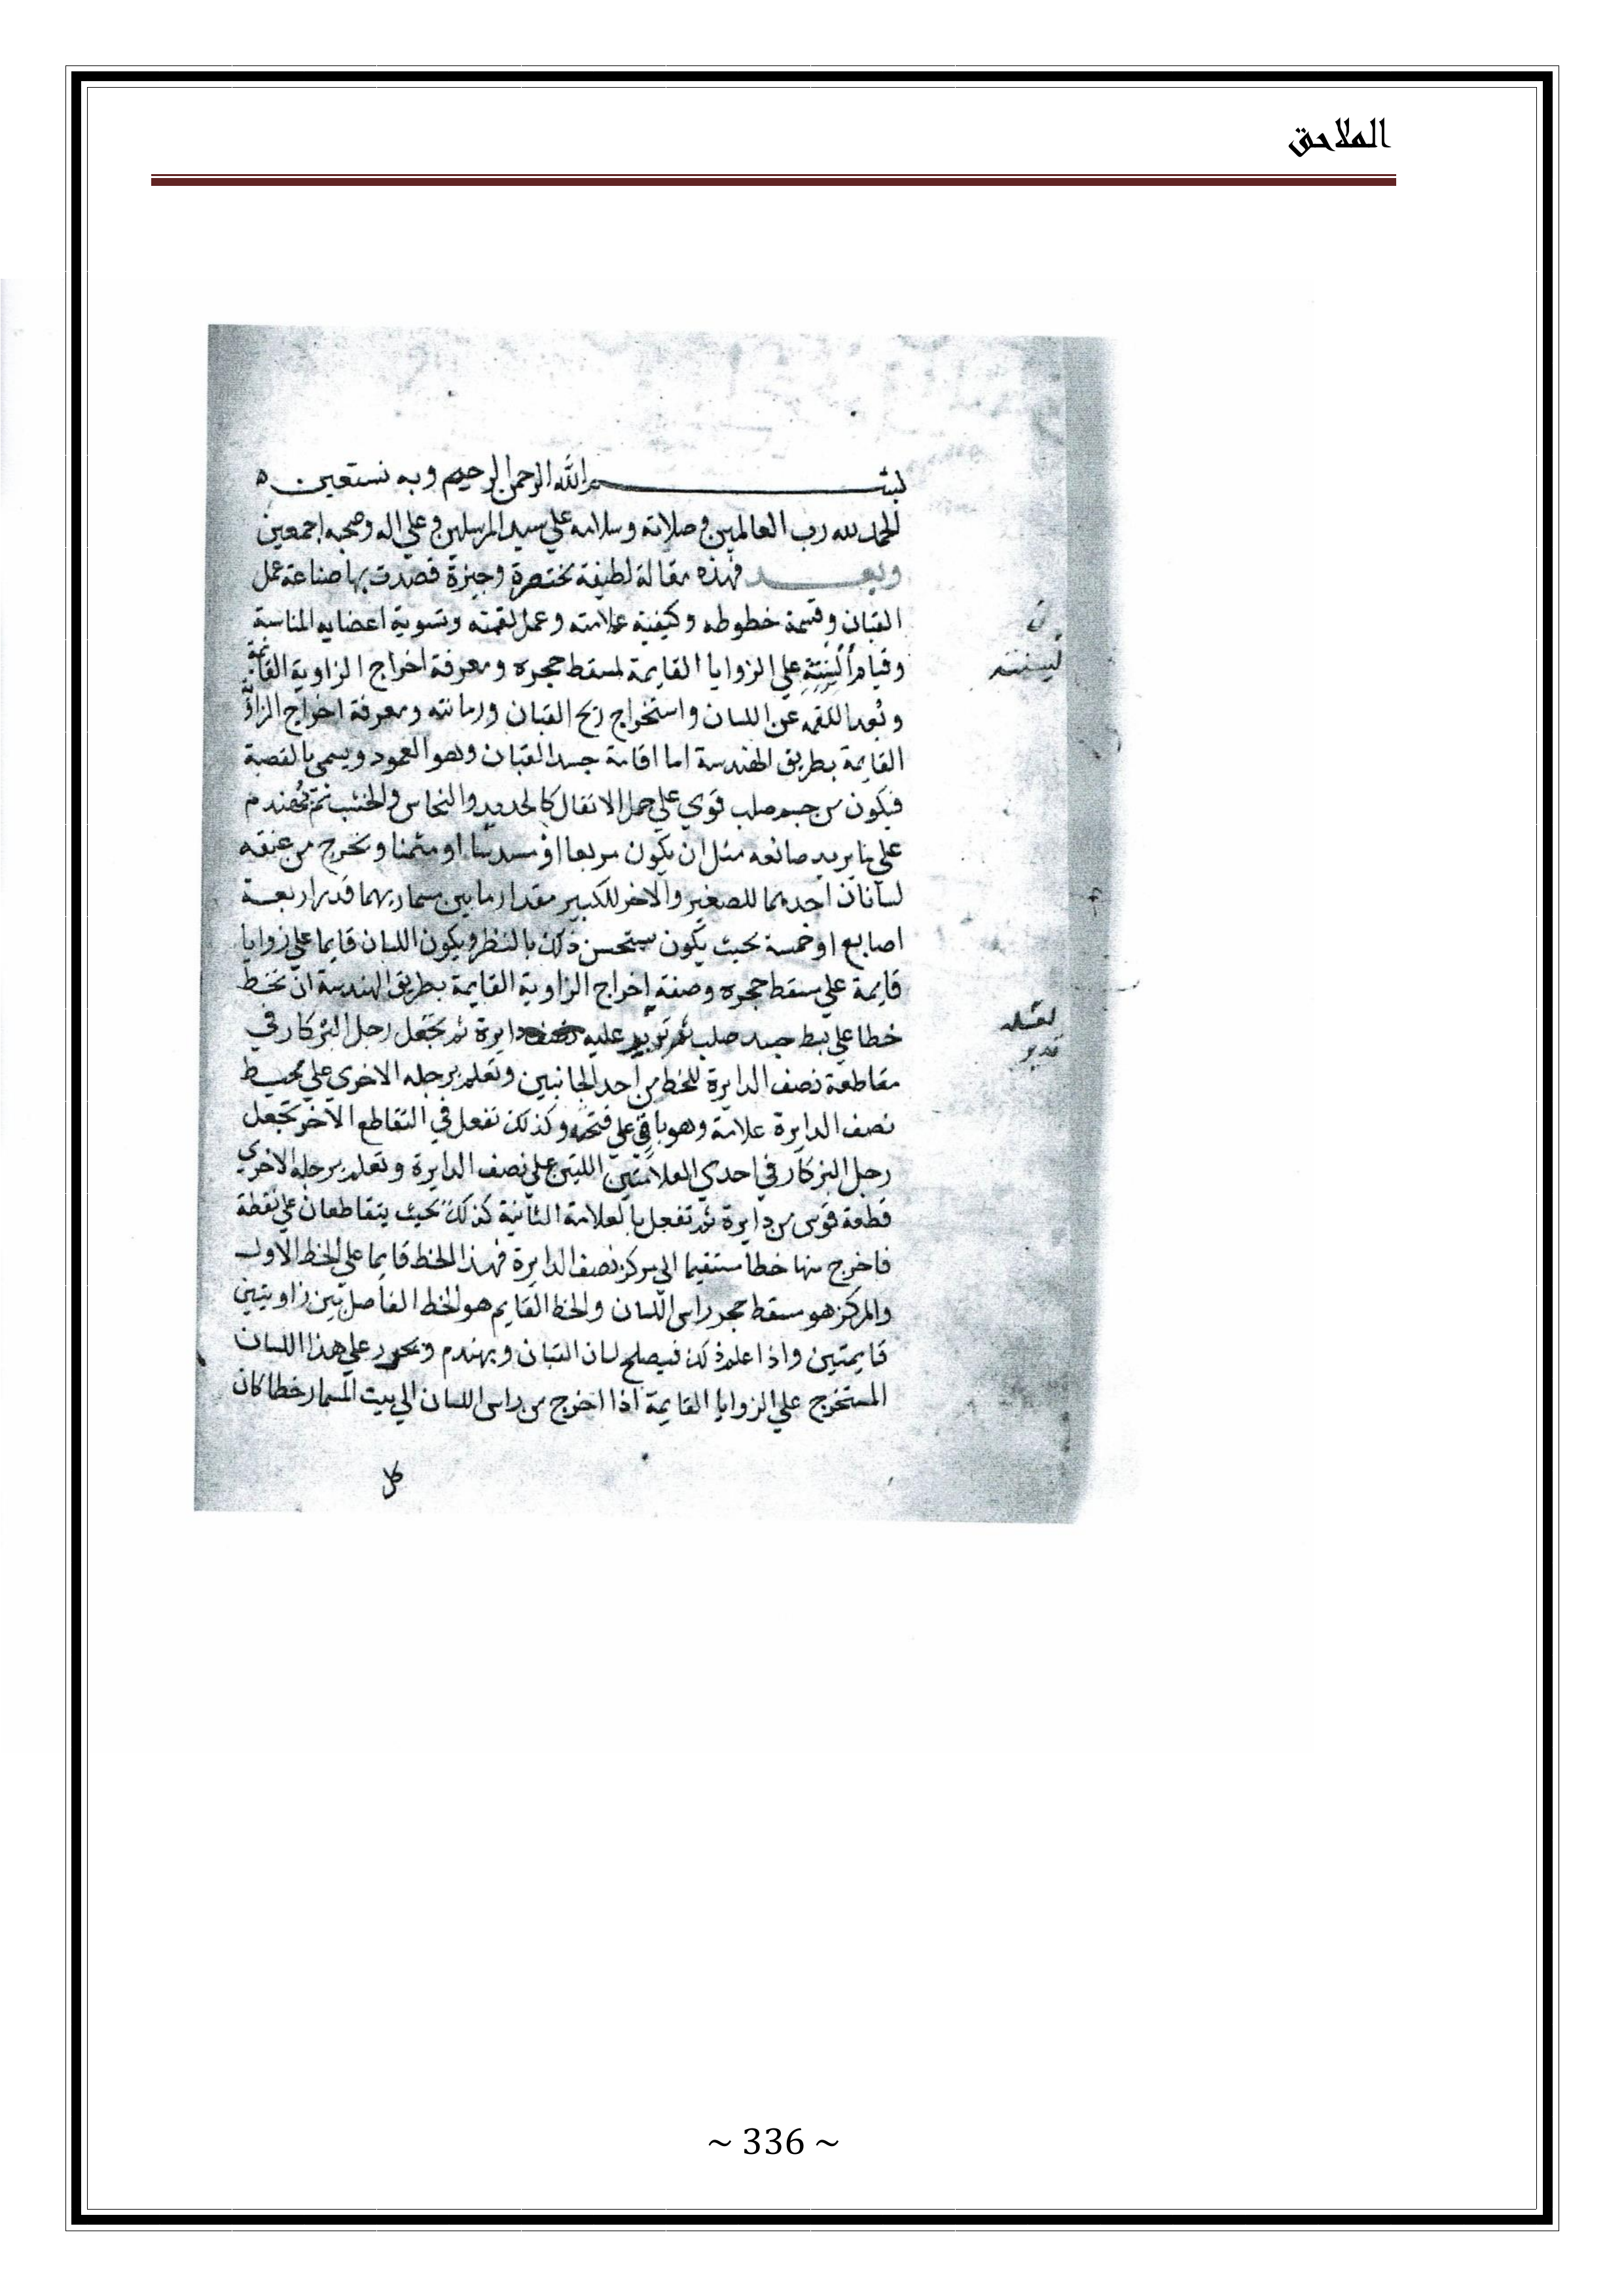 الملاحق
بسم الله الرحمن الرحيم وبه نستعين ه
الحمد لله رب العالمين وصلاته وسلامه علي سيد المرسلين وعلي اله وصحبه اجمعين
وبعد فهذه مقالة لطيفة مختصرة وجيزة قصدت بها صناعة عمل
القبان وقسمة خطوطه وكيفية علامته وعمل لقمته وتسوية اعضايه المناسبة
وقيام علي الزوايا القايمة لمسقط حجره ومعرفة اخراج الزاوية القايمة
وبعد اللقمه عن اللسان واستخراج ريح القبان ورمانته ومعرفة اخراج الزاوية
القايمة بطريق الهندسة اما اقامة جسد القبان وهو العمود ويسمي بالقصبة
فيكون من جسم صلب قوي علي حمل الاثقال كالحديد والنحاس والخشب ثم يهندم
علي ما يريد صانعه مثل ان يكون مربعا او مسدسا او مثمنا ويخرج من عنقه
لسانان احدهما للصغير والاخر للكبير مقدار ما بين مسماريهما قدر اربعة
اصابع او خمسة بحيث يكون يستحسن ذلك بالنظر ويكون اللسان قايما علي زوايا
قايمة علي مسقط حجره وصفة اخراج الزاوية القايمة بطريق الهندسة ان تخط
خطا علي جسد صلب ثم تدير عليه دايرة ثم تجعل رجل البركار في
مقاطعة نصف الدايرة للخط من احد الجانبين وتعلم برجله الاخري علي محيط
نصف الدايرة علامة وهو باقي علي فتحه وكذلك تفعل في التقاطع الاخر تجعل
رجل البركار في احدي العلامتين اللتين علي نصف الدايرة وتعلم برجله الاخري
قطعة قوس من دايرة ثم تفعل بالعلامة الثانية كذلك بحيث يتقاطعان علي نقطة
فاخرج منها خطا مستقيما الي مركز نصف الدايرة فهذا الخط قايما علي الخط الاول
والمركز هو مسقط حجر راس اللسان والخط القايم هو الخط الفاصل بين زاويتين
قايمتين واذا علم ذلك فيصلح لسان القبان ويهندم ويحرر علي هذا اللسان
المستخرج علي الزوايا القايمة اذا اخرج من راس اللسان الي بيت المسمار خطا كان
~ 336 ~